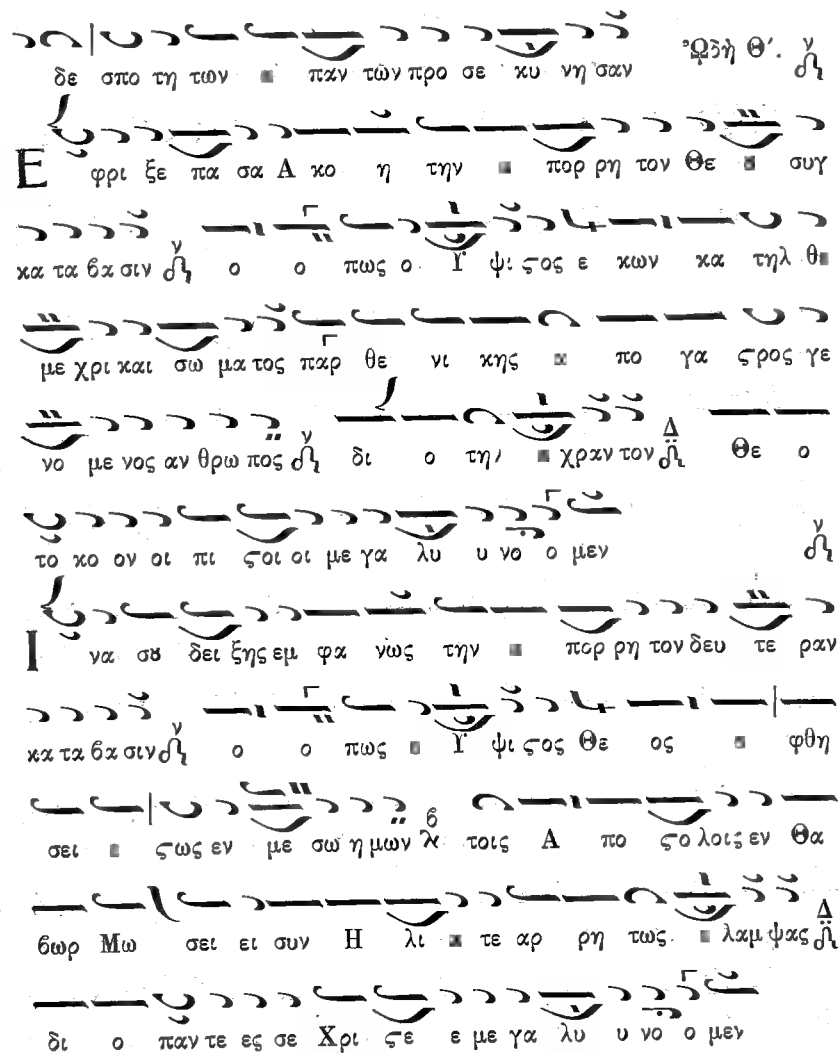 δε σπο τη των παν των προ σε κυ νη σαν ᾨδὴ Θʹ. ν
Ε φρι ξε πα σα Α κο η την πορ ρη τον Θε συγ
κα τα ϐα σιν ν ο ο πως ο Υ ψι ϛος ε κων κα τηλ
με χρι και σω μα τος παρ θε νι κης πο γα ϛρος γε
νο με νος αν θρω πος ν δι ο την χραν τον Δ Θε ο
το κο ον οι πι ϛοι οι με γα λυ υ νο ο μεν ν
Ι να σȣ δει ξης εμ φα νως την πορ ρη τον δευ τε ραν
κα τα ϐα σιν ν ο ο πως Υ ψι ϛος Θε ος φθη
σει ϛως εν με σω η μων ϐ τοις Α πο ϛο λοις εν Θα
ϐωρ Μω σει ει συν Η λι τε αρ ρη τως λαμ ψας Δ
δι ο παν τε ες σε Χρι ϛε ε με γα λυ υ νο ο μεν